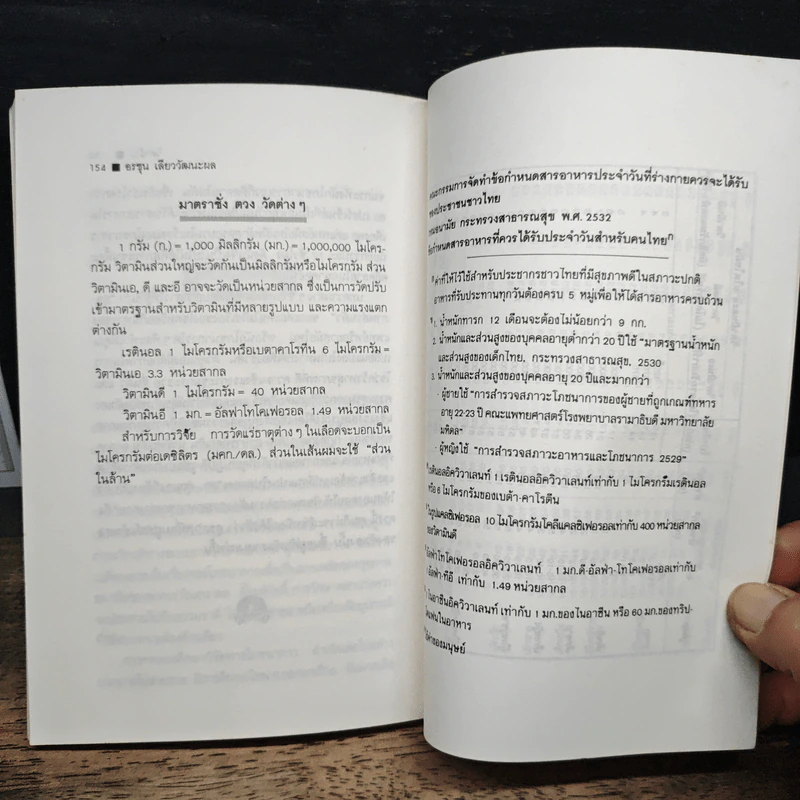 154 ■ อรชุน เลียววัฒนะผล
มาตราชั่ง ตวง วัดต่าง ๆ
1 กรัม (ก.) = 1,000 มิลลิกรัม (มก.) = 1,000,000 ไมโคร-
กรัม วิตามินส่วนใหญ่จะวัดกันเป็นมิลลิกรัมหรือไมโครกรัม ส่วน
วิตามินเอ, ดี และอี อาจจะวัดเป็นหน่วยสากล ซึ่งเป็นการวัดปรับ
เข้ามาตรฐานสำหรับวิตามินที่มีหลายรูปแบบ และความแรงแตก
ต่างกัน
เรตินอล 1 ไมโครกรัมหรือเบตาคาโรทีน 6 ไมโครกรัม =
วิตามินเอ 3.3 หน่วยสากล
วิตามินดี 1 ไมโครกรัม = 40 หน่วยสากล
วิตามินอี 1 มก. = อัลฟาโทโคเฟอรอล 1.49 หน่วยสากล
สำหรับการวิจัย การวัดแร่ธาตุต่าง ๆ ในเลือดจะบอกเป็น
ไมโครกรัมต่อเดซิลิตร (มคก./ดล.) ส่วนในเส้นผมจะใช้ "ส่วน
ในล้าน"
กรรมการจัดทำข้อกำหนดสารอาหารประจำวันที่ร่างกายควรจะได้รับ
ของประชาชนชาวไทย
กรมอนามัย กระทรวงสาธารณสุข พ.ศ. 2532
ข้อกำหนดสารอาหารที่ควรได้รับประจำวันสำหรับคนไทยก
ค่าที่ให้ไว้ใช้สำหรับประชากรชาวไทยที่มีสุขภาพดีในสภาวะปกติ
อาหารที่รับประทานทุกวันต้องครบ 5 หมู่เพื่อให้ได้สารอาหารครบถ้วน
1. น้ำหนักทารก 12 เดือนจะต้องไม่น้อยกว่า 9 กก.
2. น้ำหนักและส่วนสูงของบุคคลอายุต่ำกว่า 20 ปีใช้ "มาตรฐานน้ำหนัก
และส่วนสูงของเด็กไทย, กระทรวงสาธารณสุข, 2530
3. น้ำหนักและส่วนสูงของบุคคลอายุ 20 ปีและมากกว่า
- ผู้ชายใช้ "การสำรวจสภาวะโภชนาการของผู้ชายที่ถูกเกณฑ์ทหาร
อายุ 22-23 ปี คณะแพทยศาสตร์โรงพยาบาลรามาธิบดี มหาวิทยาลัย
มหิดล"
- ผู้หญิงใช้ "การสำรวจสภาวะอาหารและโภชนาการ 2529"
เรตินอลอิควิวาเลนท์ 1 เรตินอลอิควิวาเลนท์เท่ากับ 1 ไมโครกรัมเรตินอล
หรือ 6 ไมโครกรัมของเบต้า-คาโรตีน
ในรูปแคลซิเฟอรอล 10 ไมโครกรัมโคลีแคลซิเฟอรอลเท่ากับ 400 หน่วยสากล
ของวิตามินดี
อัลฟาโทโคเฟอรอลอิควิวาเลนท์ 1 มก.ดี-อัลฟ่า-โทโคเฟอรอลเท่ากับ
อัลฟ่า-ทีอี เท่ากับ 1.49 หน่วยสากล
ไนอาซินอิควิวาเลนท์ เท่ากับ 1 มก.ของไนอาซิน หรือ 60 มก.ของทริป-
โตเฟนในอาหาร
ของมนุษย์